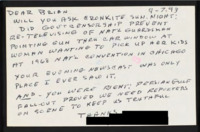 9-7-93
DEAR BRIAN
WILL YOU ASK CRONKITE SUN. NIGHT:
DID GOV'T CENSORSHIP PREVENT
RE-TELEVISING OF NAT'L GUARDSMAN
POINTING GUN THRU CAR WINDOW AT
WOMAN WANTING TO PICK UP HER KIDS
AT 1968 NAT'L CONVENTION IN CHICAGO
YOUR EVENING NEWSCAST WAS ONLY
PLACE I EVER SAW IT.
AND - YOU WERE RIGHT,
FALL-OUT PROVED WE NEED REPORTERS
ON SCENE TO KEEP US TRUTHFUL